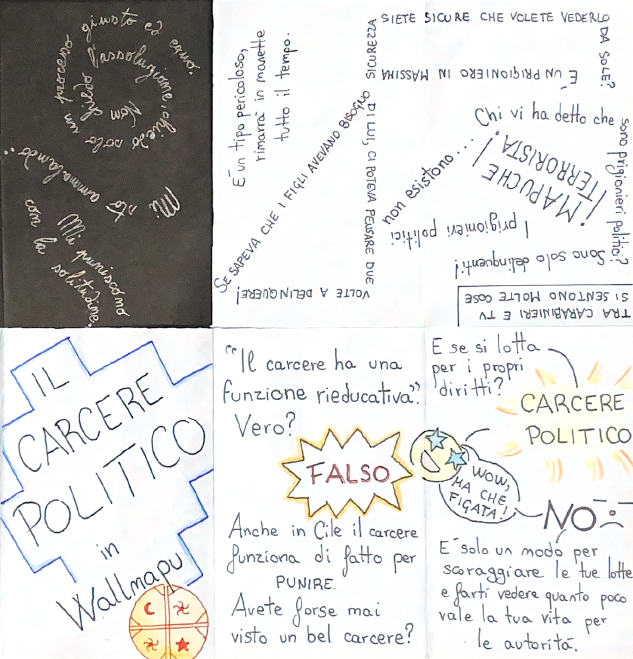 Non chiedo
l'assoluzione, chiedo solo un processo giusto ed equo.
Mi sto ammalando...
Mi puniscono
con la solitudine.
E' un tipo pericoloso,
rimarrà in manette
tutto il tempo.
SE SAPEVA CHE I FIGLI AVEVANO BISOGNO
DI LUI, CI POTEVA PENSARE DUE
VOLTE A DELINQUERE!
SIETE SICURE CHE VOLETE VEDERLO
DA SOLE?
È UN PRIGIONIERO IN MASSIMA
SICUREZZA
Chi vi ha detto che
sono prigionieri politici?
Sono solo delinquenti!
¡MAPUCHE
TERRORISTA!
I prigionieri politici
non esistono...
TRA CARABINIERI E TV
SI SENTONO MOLTE COSE
IL
CARCERE
POLITICO
in
Wallmapu
"Il carcere ha una
funzione rieducativa".
Vero?
FALSO
Anche in Cile il carcere
funziona di fatto per
PUNIRE.
Avete forse mai
visto un bel carcere?
E se si lotta
per i propri
diritti?
CARCERE
POLITICO
WOW,
MA CHE
FIGATA!
NO
E' solo un modo per
scoraggiare le tue lotte
e farti vedere quanto poco
vale la tua vita per
le autorità.